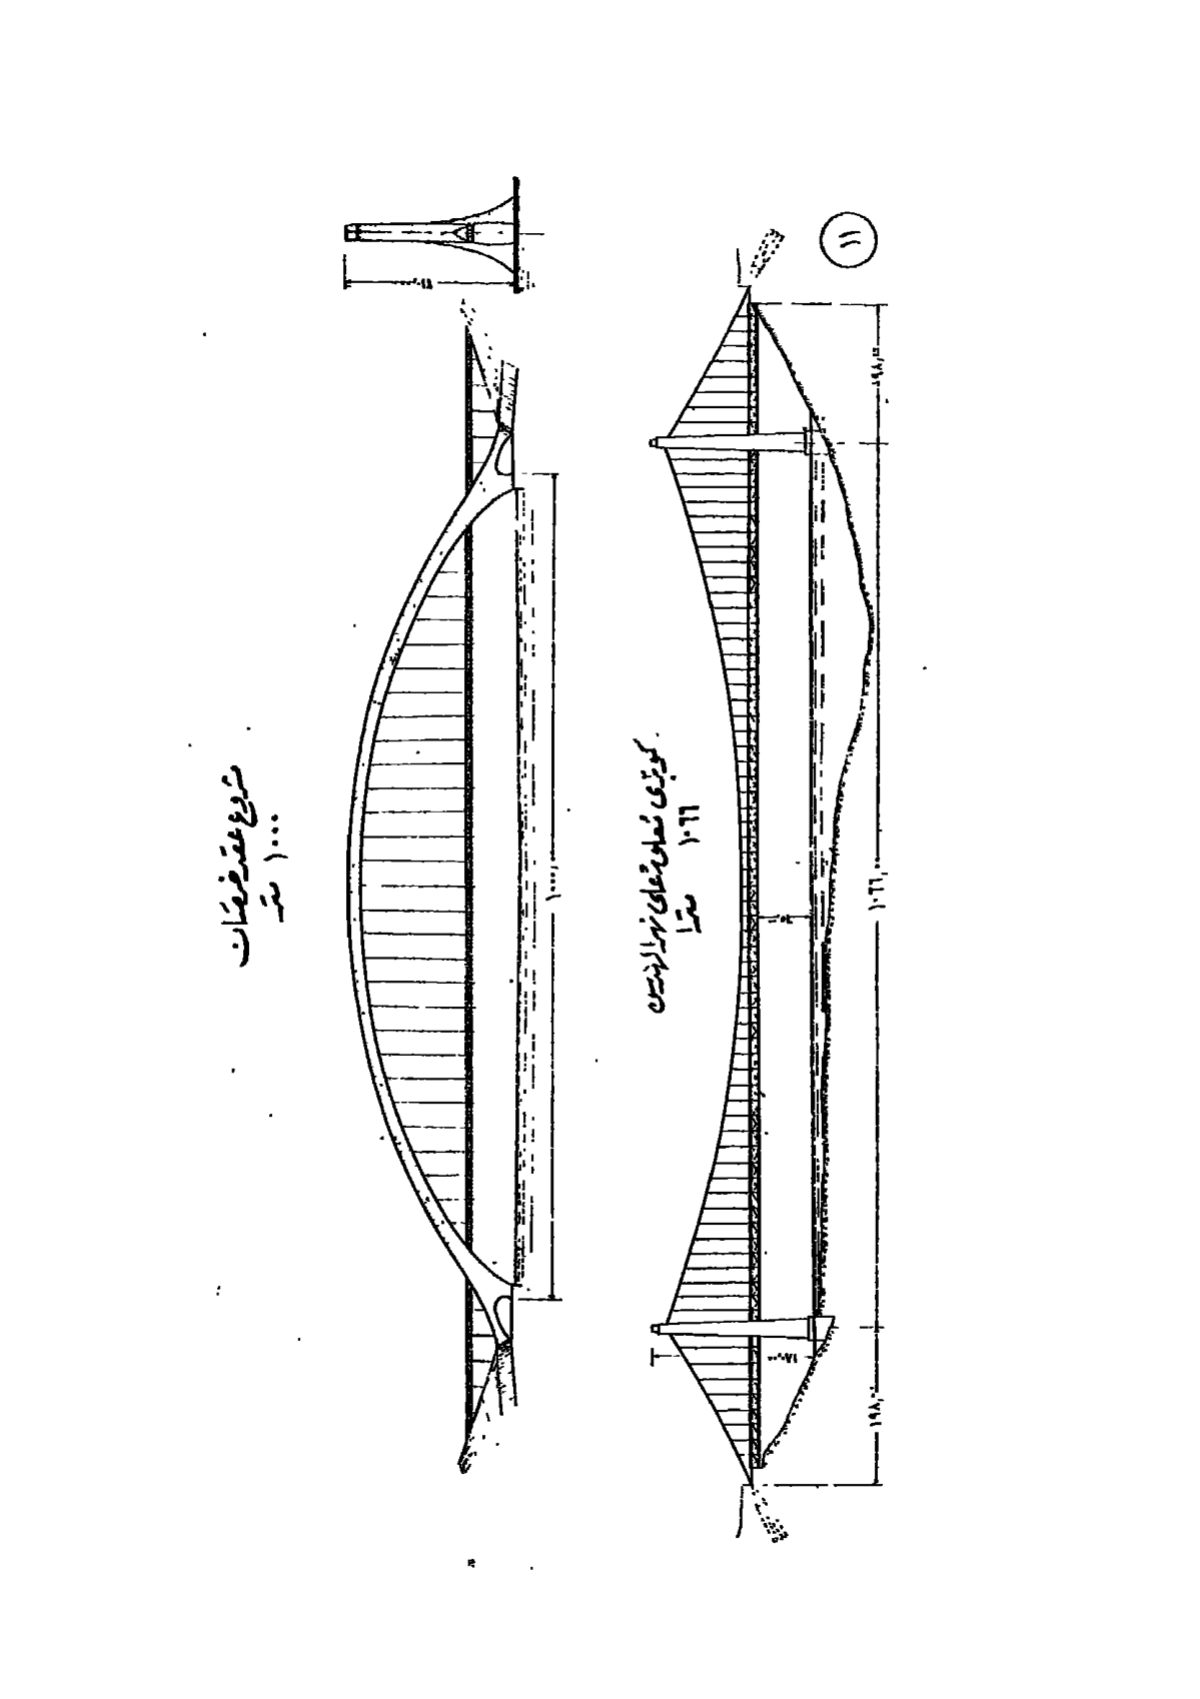 مشروع عقد خرسان
١٠٠٠ متر
١٠٠٠,٠٠
كوبرى معلق على نهر الهدسن
١٠٦٦ مترا
١٩٨,٠٠
١٠٦٦,٠٠
١٩٨,٠٠
١١